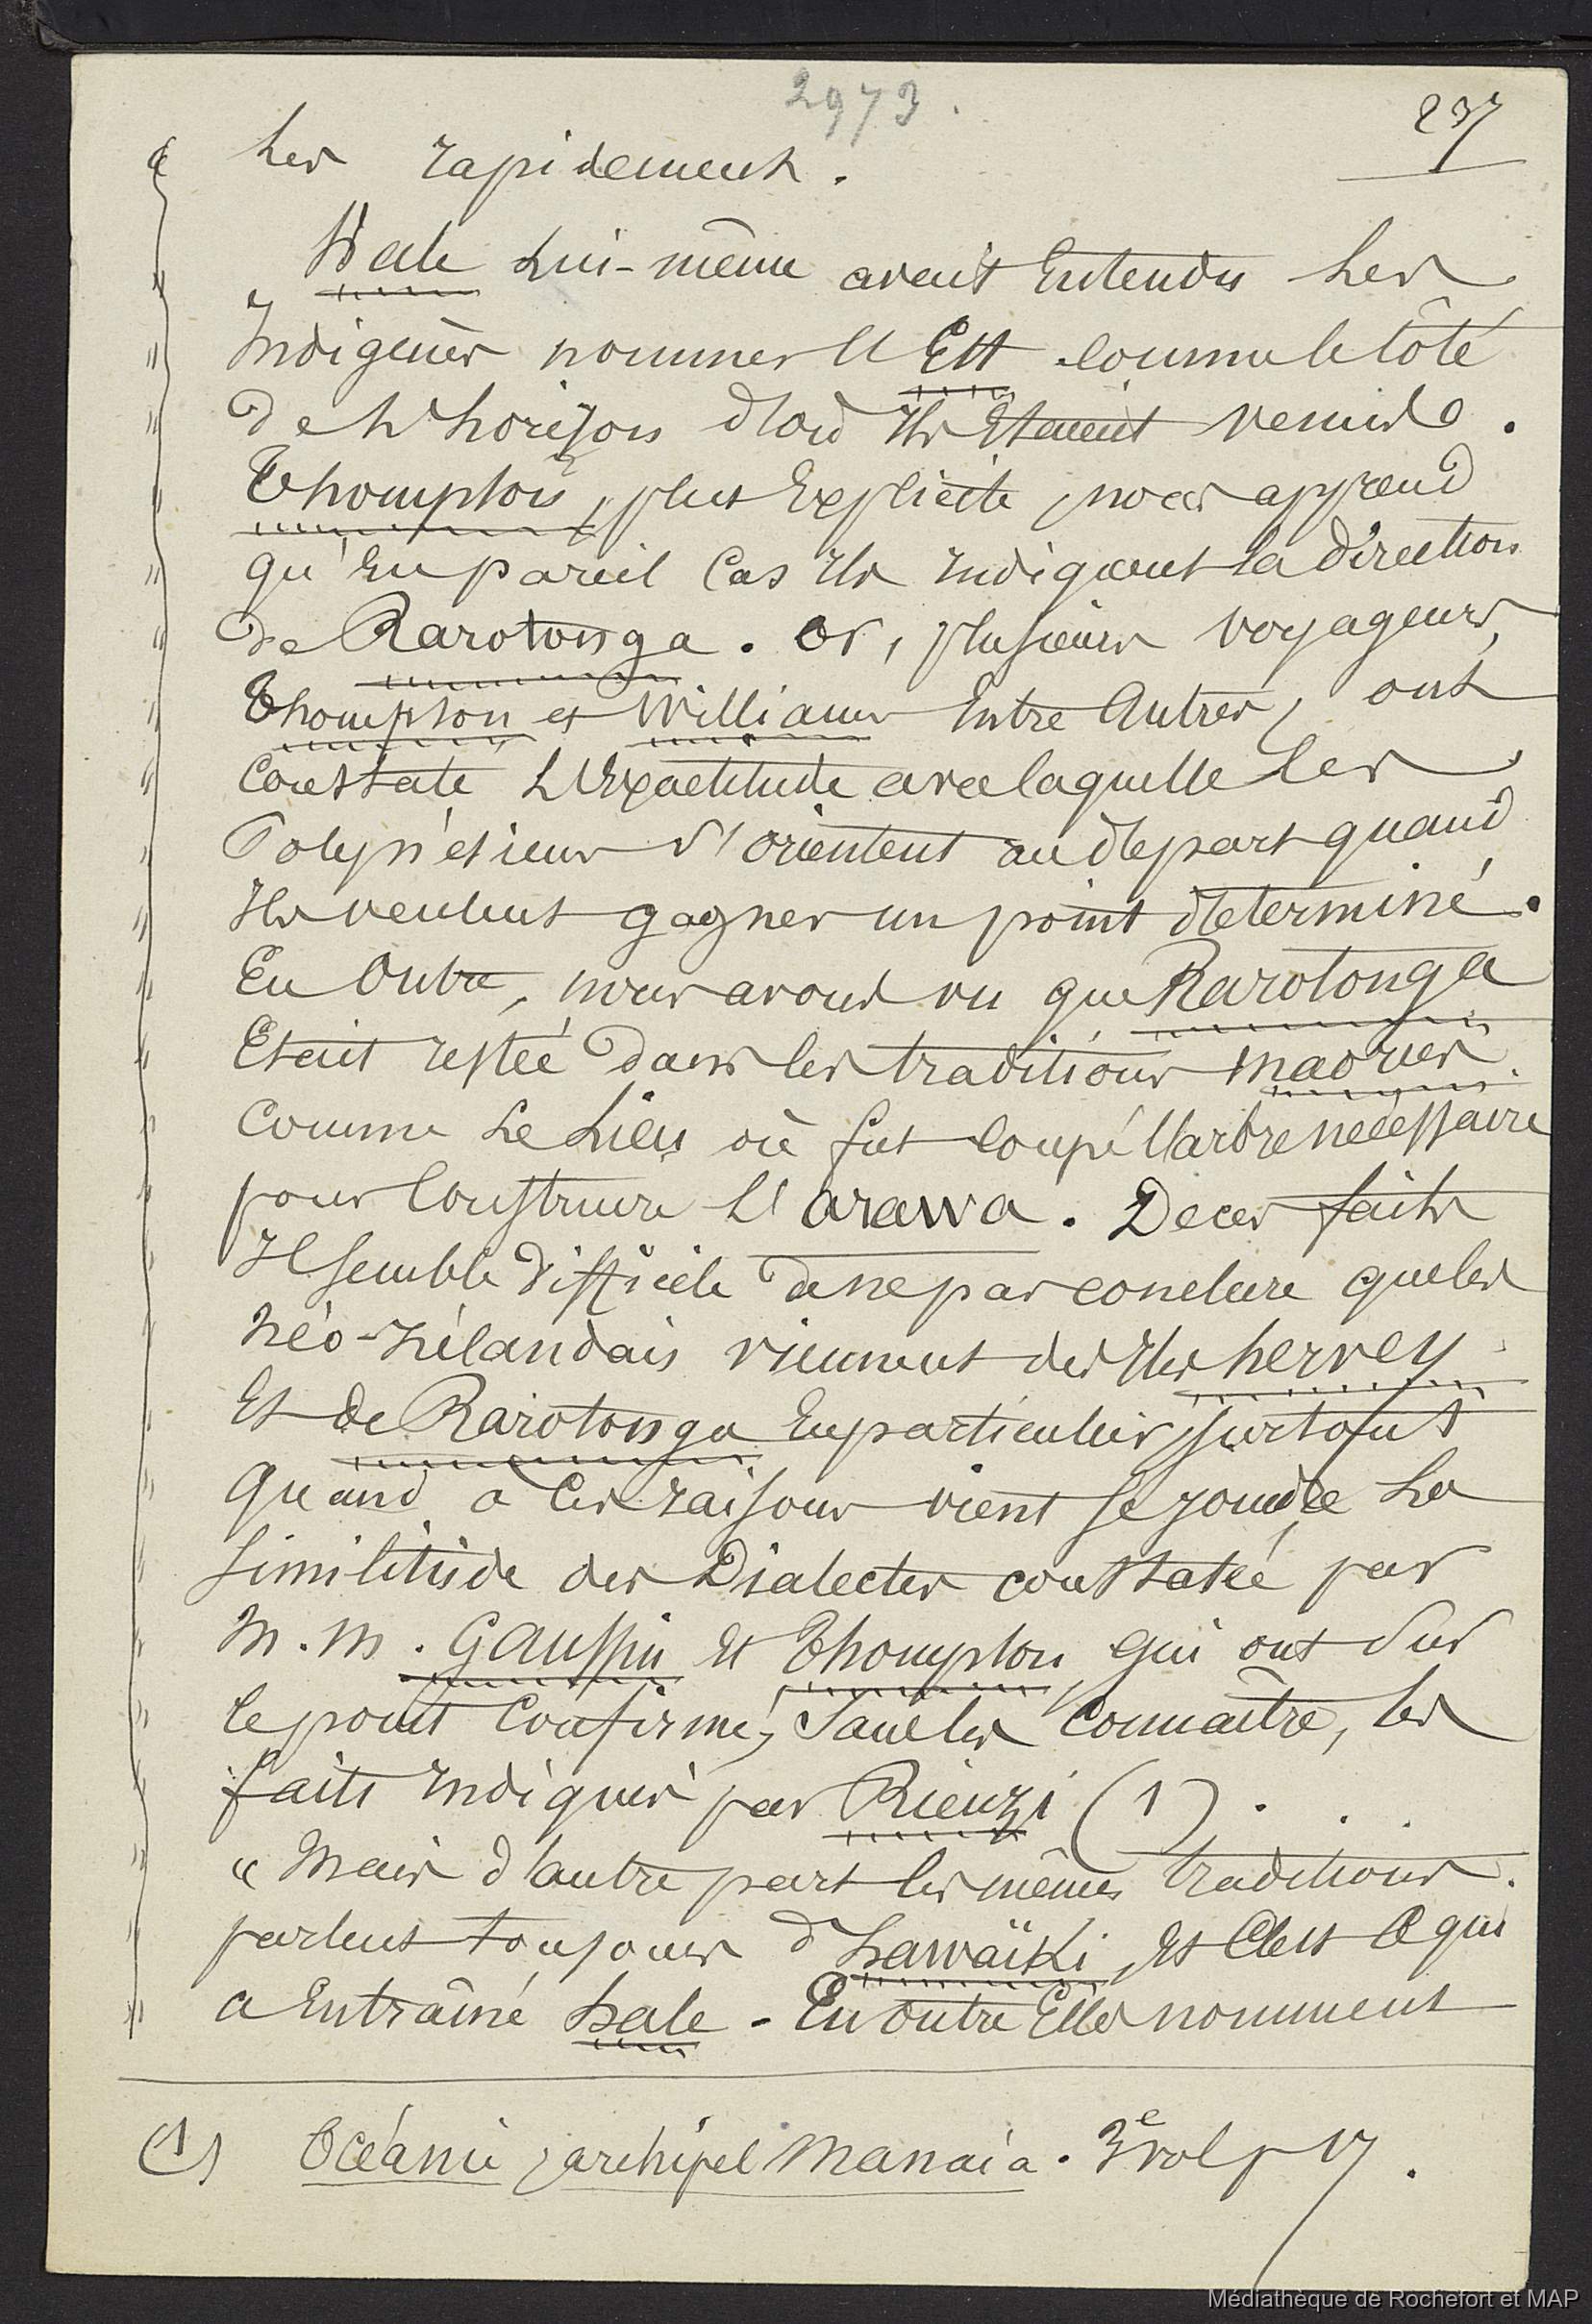 2973.
237
les rapidement.
Hale lui-même avait entendu les
Indigènes nommer l'Est comme le côté
de l'horizon d'où ils étaient venus.
Thompson, plus explicite, nous apprend
qu'en pareil cas ils indiquent la direction
de Rarotonga. Or, plusieurs voyageurs,
Thompson et Williams entre autres, ont
constaté l'exactitude avec laquelle les
Polynésiens s'orientent au départ quand
ils veulent gagner un point déterminé.
En outre, nous avons vu que Rarotonga
était restée dans les traditions maories
comme le lieu où fut coupé l'arbre nécessaire
pour construire l'arawa. De ces faits
il semble difficile de ne pas conclure que les
néo-zélandais viennent des îles hervey
et de Rarotonga en particulier, surtout
quand à ces raisons vient se joindre la
similitude des Dialectes constatée par
M.M. Gaussin et Thompson qui ont sur
ce point confirmé, sans les connaître, les
faits indiqués par Rienzi (1).
« Mais d'autre part les mêmes traditions
parlent toujours d'hawaïki, et c'est ce qui
a entraîné hale - En outre elles nomment
(1) Océanie, archipel Manaia. 3e vol p 17.
Médiathèque de Rochefort et MAP